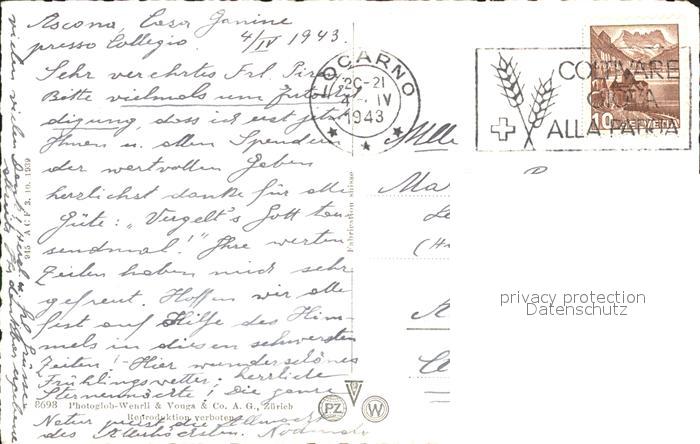 Ascona, Casa Janine
presso Collegio 4/IV 1943.
Sehr verehrtes Frl.
Bitte vielmals um Entschul
digung, dass ich erst jetzt
Ihnen u. allen Spendern
der wertvollen Gaben
herzlichst danke für alle
Güte: „Vergelt's Gott tau
sendmal!" Ihre werten
Zeilen haben mich sehr
gefreut. Hoffen wir alle
fest auf Hilfe des Him
mels in diesen schwersten
Zeiten! Hier wunderschönes
Frühlingswetter, herrliche
Sternennächte! Die ganze
Natur preist die Allmacht
des Allerhöchsten. Nochmals
vielen vielen Dank!
8698 Photoglob-Wehrli & Vouga & Co. A. G., Zürich
Reproduktion verboten
PZ W
945 ACF 3. 10. 1939
Fabrication suisse
LOCARNO
20-21
4. IV
1943
COLTIVARE
ALLA PATRIA
10 HELVETIA
Mlle
Ma
privacy protection
Datenschutz